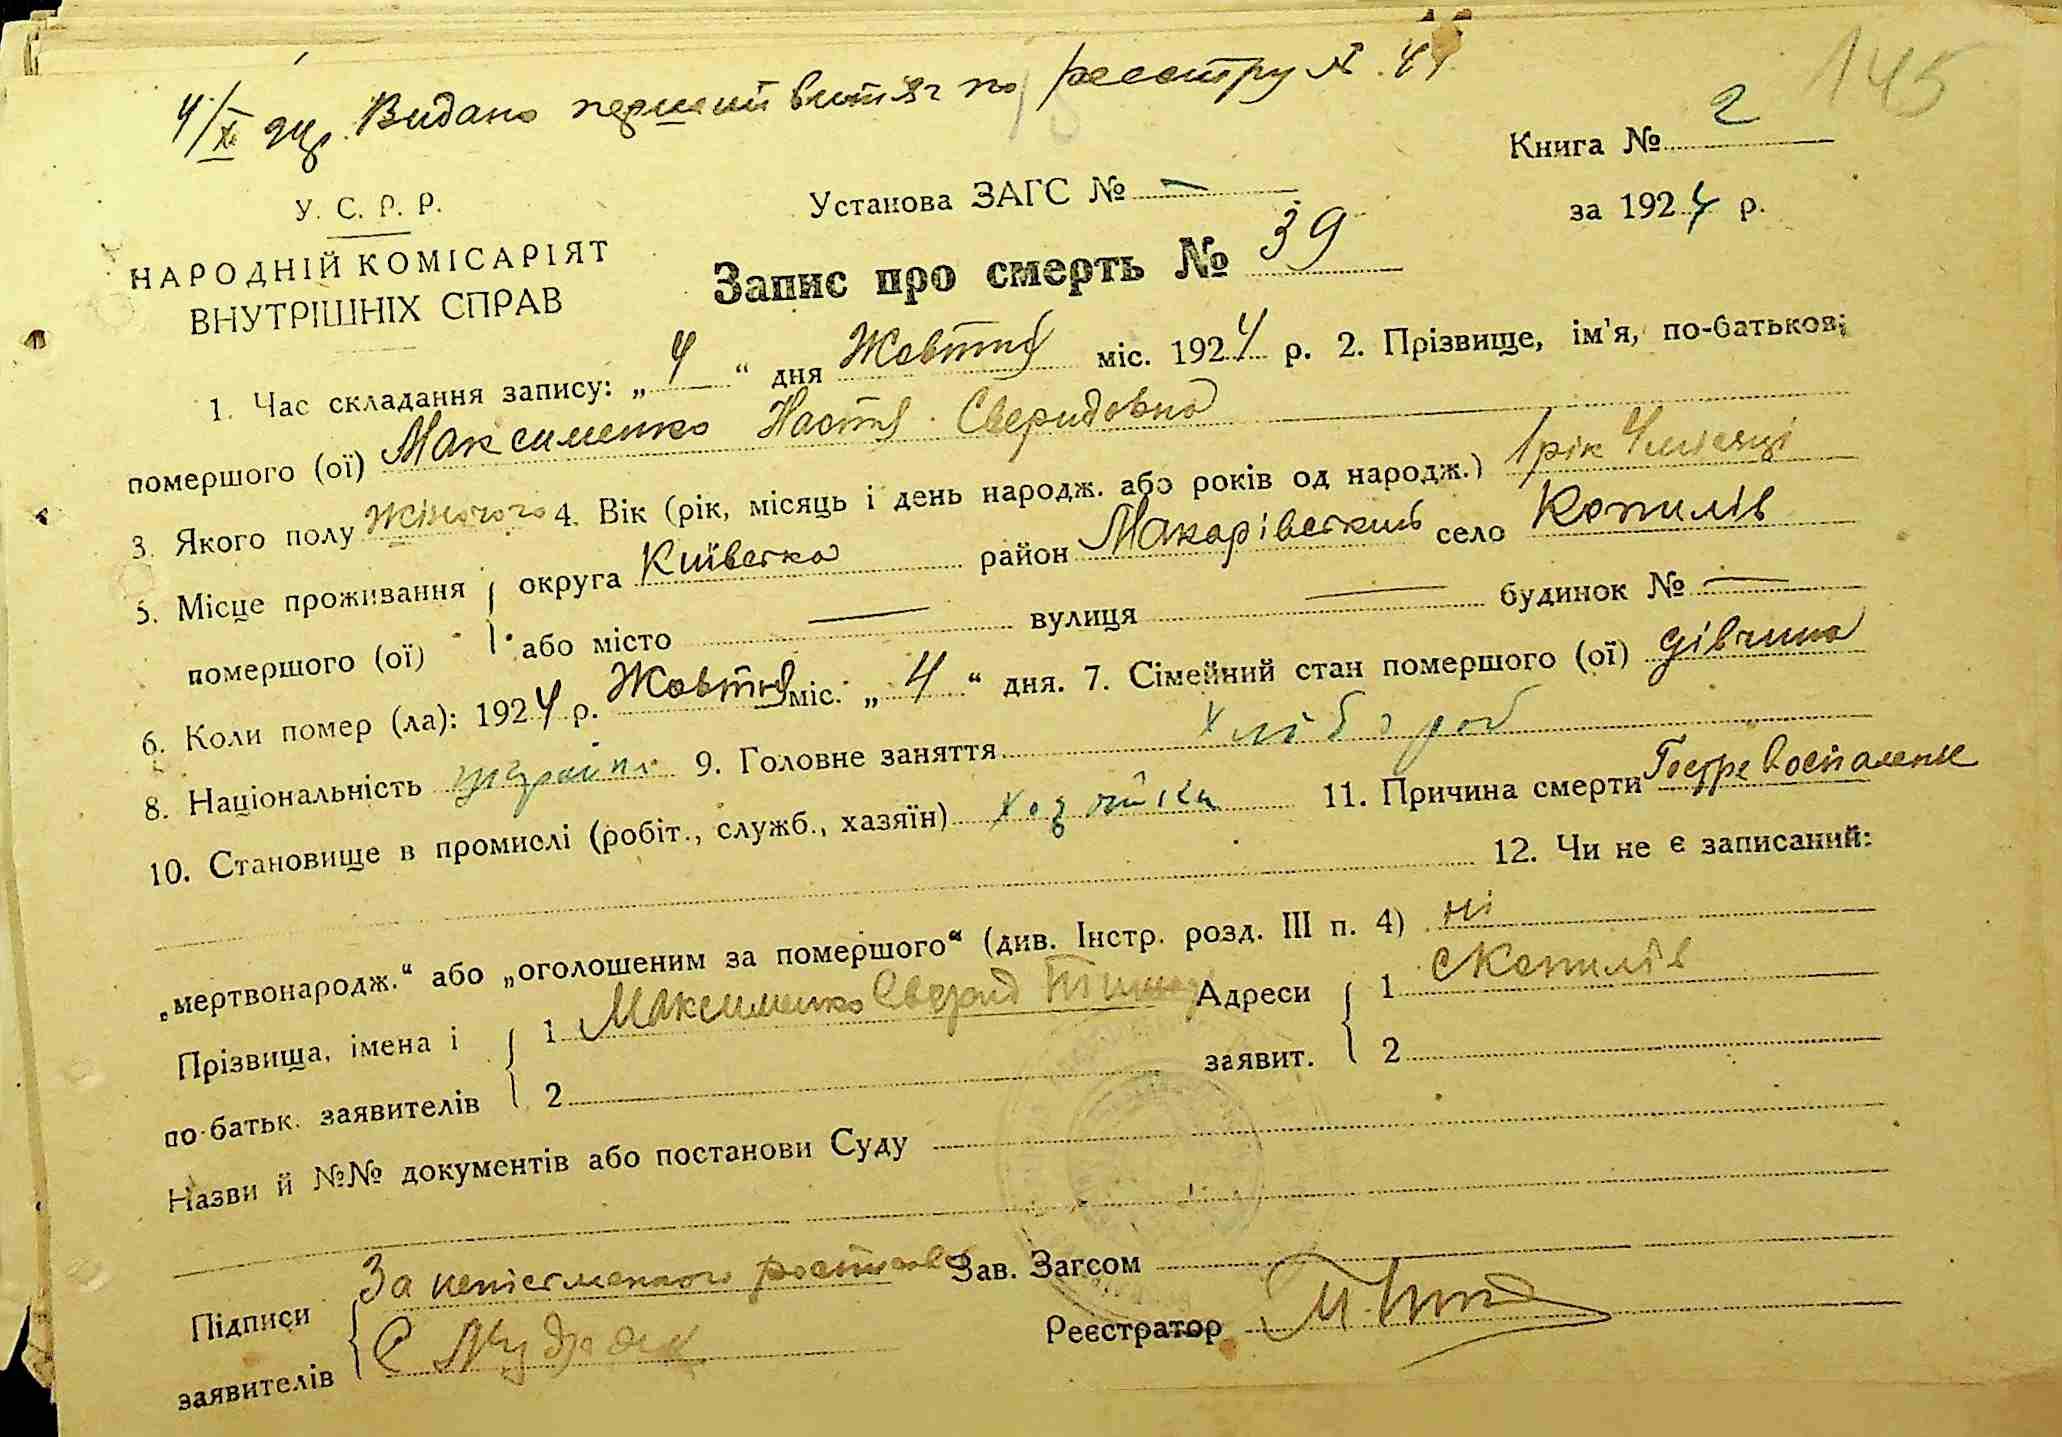 145
4/X 24р. Видано перший витяг по реєстру № 44
Книга № 2
У. С. Р. Р.
Установа ЗАГС № —
за 1924 р.
НАРОДНІЙ КОМІСАРІЯТ
ВНУТРІШНІХ СПРАВ
Запис про смерть № 39
1. Час складання запису: „ 4 “ дня Жовтня міс. 1924 р. 2. Прізвище, ім'я, по-батькові
помершого (ої) Максименко Настя Сверидовна
3. Якого полу Жіночого 4. Вік (рік, місяць і день народж. або років од народж.) 1 рік 4 місяці
5. Місце проживання округа Київська район Макарівський село Копилів
помершого (ої) або місто — вулиця — будинок № —
6. Коли помер (ла): 1924 р. Жовтня міс. „ 4 “ дня. 7. Сімейний стан помершого (ої) дівчина
8. Національність 9. Головне заняття хлібороб
10. Становище в промислі (робіт., служб., хазяїн) 11. Причина смерти Гостре воспаление
12. Чи не є записаний:
„мертвонародж.“ або „оголошеним за помершого“ (див. Інстр. розд. III п. 4) ні
Прізвища, імена і 1 Максименко Сверид Адреси 1 с Копилів
по-батьк. заявителів 2 заявит. 2
Назви й №№ документів або постанови Суду
Підписи За неписьменного Зав. Загсом
заявителів Реєстратор